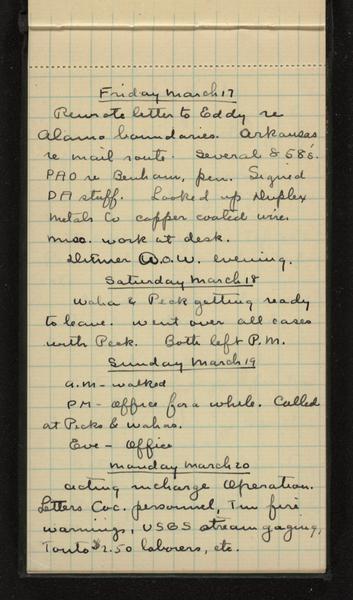 Friday March 17
Rewrote letter to Eddy re
Alamo boundaries. Arkansas
re mail route. Several 858's.
PAO re Benham, pen. Signed
DA stuff. Looked up Duplex
Metals Co copper coated wire.
Misc. work at desk.
Ditmer W.O.W. evening.
Saturday March 18
Waha & Peck getting ready
to leave. Went over all cases
with Peck. Both left P.M.
Sunday March 19
A.M - walked
PM - Office for a while. Called
at Pecks & Wahas.
Eve - Office
Monday March 20
Acting incharge Operation.
Letters Coc. personnel, Tm fire
warnings, USGS stream gaging,
Tonto $2.50 laborers, etc.